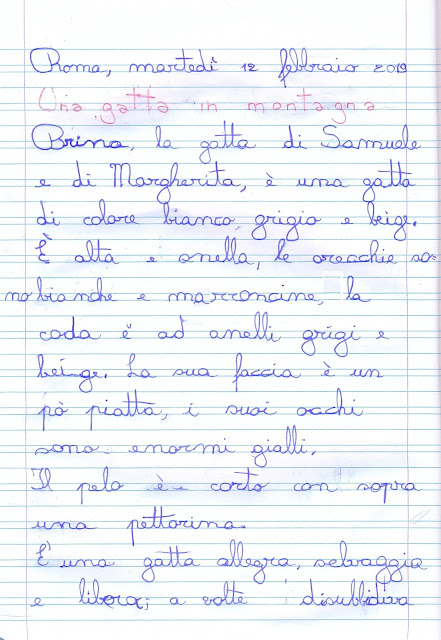 Roma, martedì 12 febbraio 2019
Una gatta in montagna
Brina, la gatta di Samuele
e di Margherita, è una gatta
di colore bianco, grigio e beige.
È alta e snella, le orecchie so-
no bianche e marroncine, la
coda è ad anelli grigi e
beige. La sua faccia è un
pò piatta, i suoi occhi
sono enormi gialli.
Il pelo è corto con sopra
una pettorina.
E' una gatta allegra, selvaggia
e libera; a volte disubbidiva